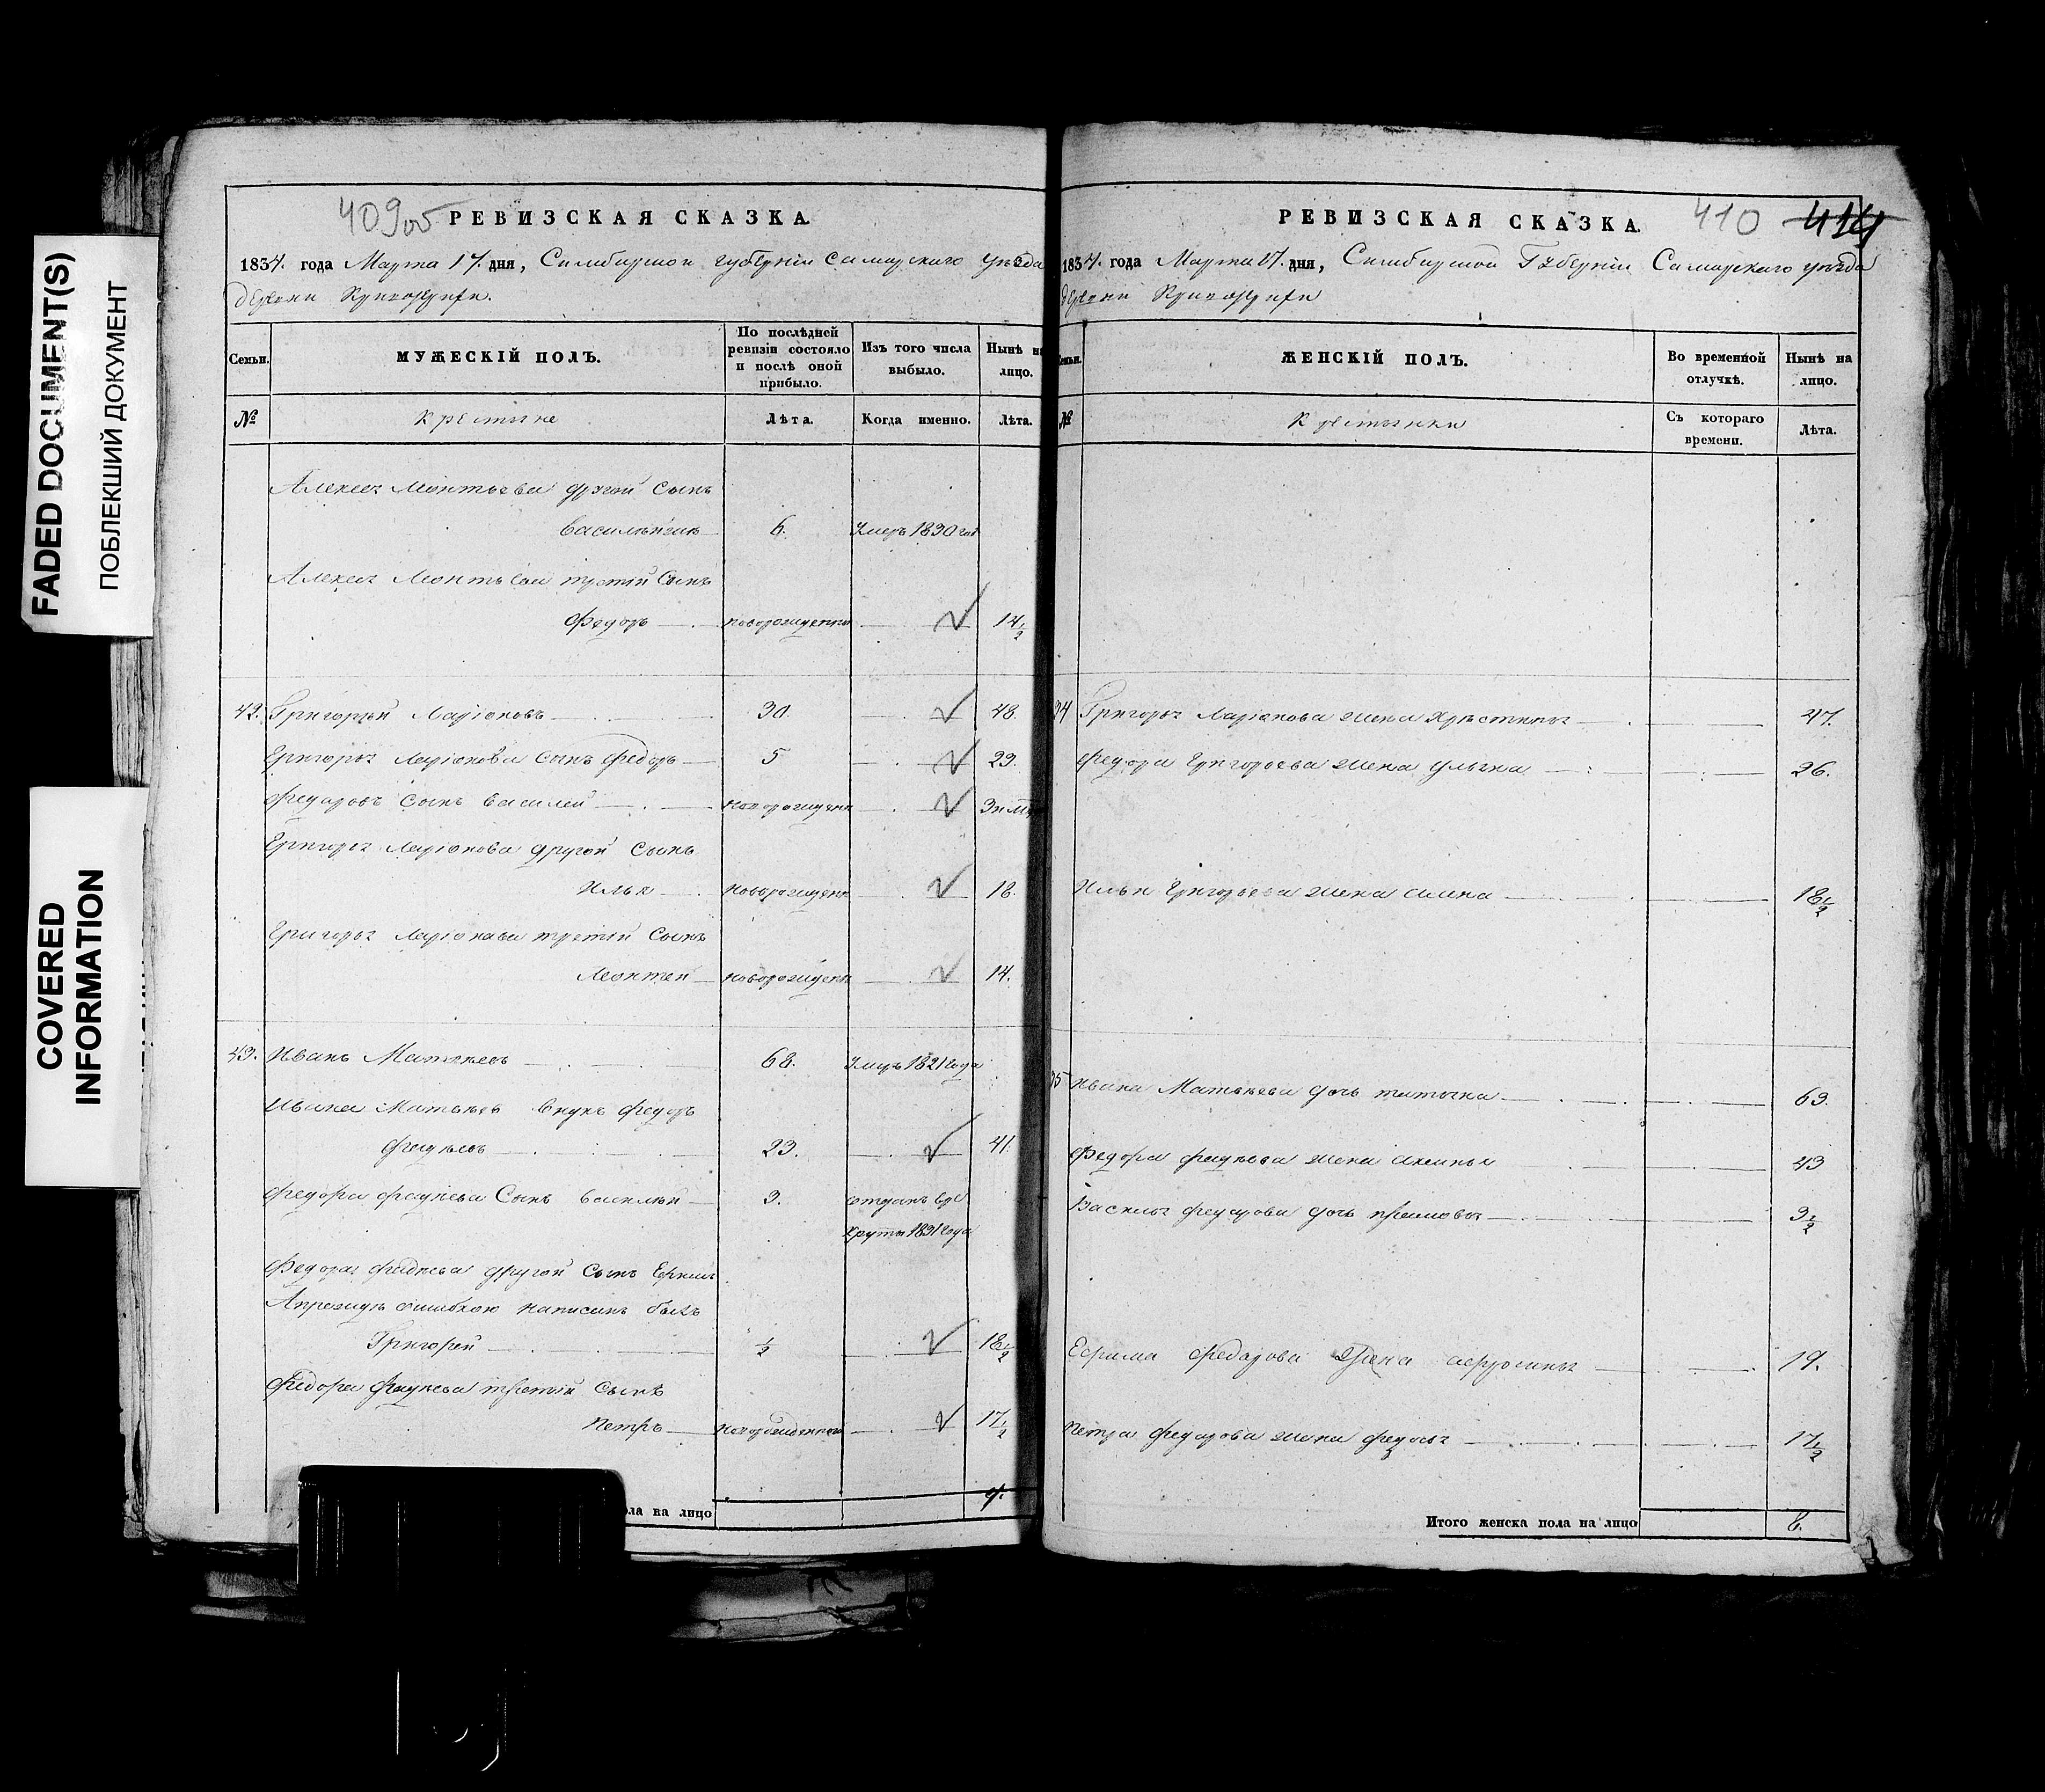 FADED DOCUMENT(S)
ПОБЛЕКШИЙ ДОКУМЕНТ
COVERED
INFORMATION
409об
РЕВИЗСКАЯ СКАЗКА.
1834. года Марта 17. дня, Симбирской губернiи Самарского уѣзда
деревни
Семьи.
МУЖЕСКIЙ ПОЛЪ.
По послѣдней ревизiи состояло и послѣ оной прибыло.
Изъ того числа выбыло.
Нынѣ на лицо.
№
Крестьяне
Лѣта.
Когда именно.
Лѣта.
Алексея Леонтьева другой сынъ
6. Умеръ 1830 года
Алексея Леонтьева третiй сынъ
Федоръ новорожденный 14 1/2
42. Григорей Ларiоновъ 30. 48.
Григорья Ларiонова сынъ Федоръ 5 23.
Федоровъ сынъ Василей новорожденъ
Григорья Ларiонова другой сынъ
Илья новорожденъ 18.
Григорья Ларiонова третiй сынъ
Леонтей новорожденъ 14.
43. Иванъ Матвѣевъ 68. Умеръ 1821 года
Ивана Матвѣева внукъ Федоръ
Фадѣевъ 23. 41.
Федора Фадѣева сынъ Василей 3. отданъ в
рекруты 1831 года
Федора Фадѣева другой сынъ Ефимъ
А прежде ошибкою написанъ былъ
Григорей 1/2 18 1/2
Федора Фадѣева третiй сынъ
Петръ новорожденный 17 1/2
пола на лицо 9.
РЕВИЗСКАЯ СКАЗКА.
410 414
1834. года Марта 17. дня, Симбирской Губернiи Самарского уѣзда
деревни
Семьи.
ЖЕНСКIЙ ПОЛЪ.
Во временной отлучкѣ.
Нынѣ на лицо.
№
Крестьянки
Съ котораго времени.
Лѣта.
Григорья Ларiонова жена 47.
Федора Григорьева жена Ульяна 26.
Ильи Григорьева жена 18 1/2
Ивана Матвѣева дочь Татьяна 63.
Федора Фадѣева жена Аксинья 43
Василья Федорова дочь 3 1/2
Ефима Федорова жена Афросинья 19.
Петра Федорова жена Федосья 17 1/2
Итого женска пола на лицо 8.